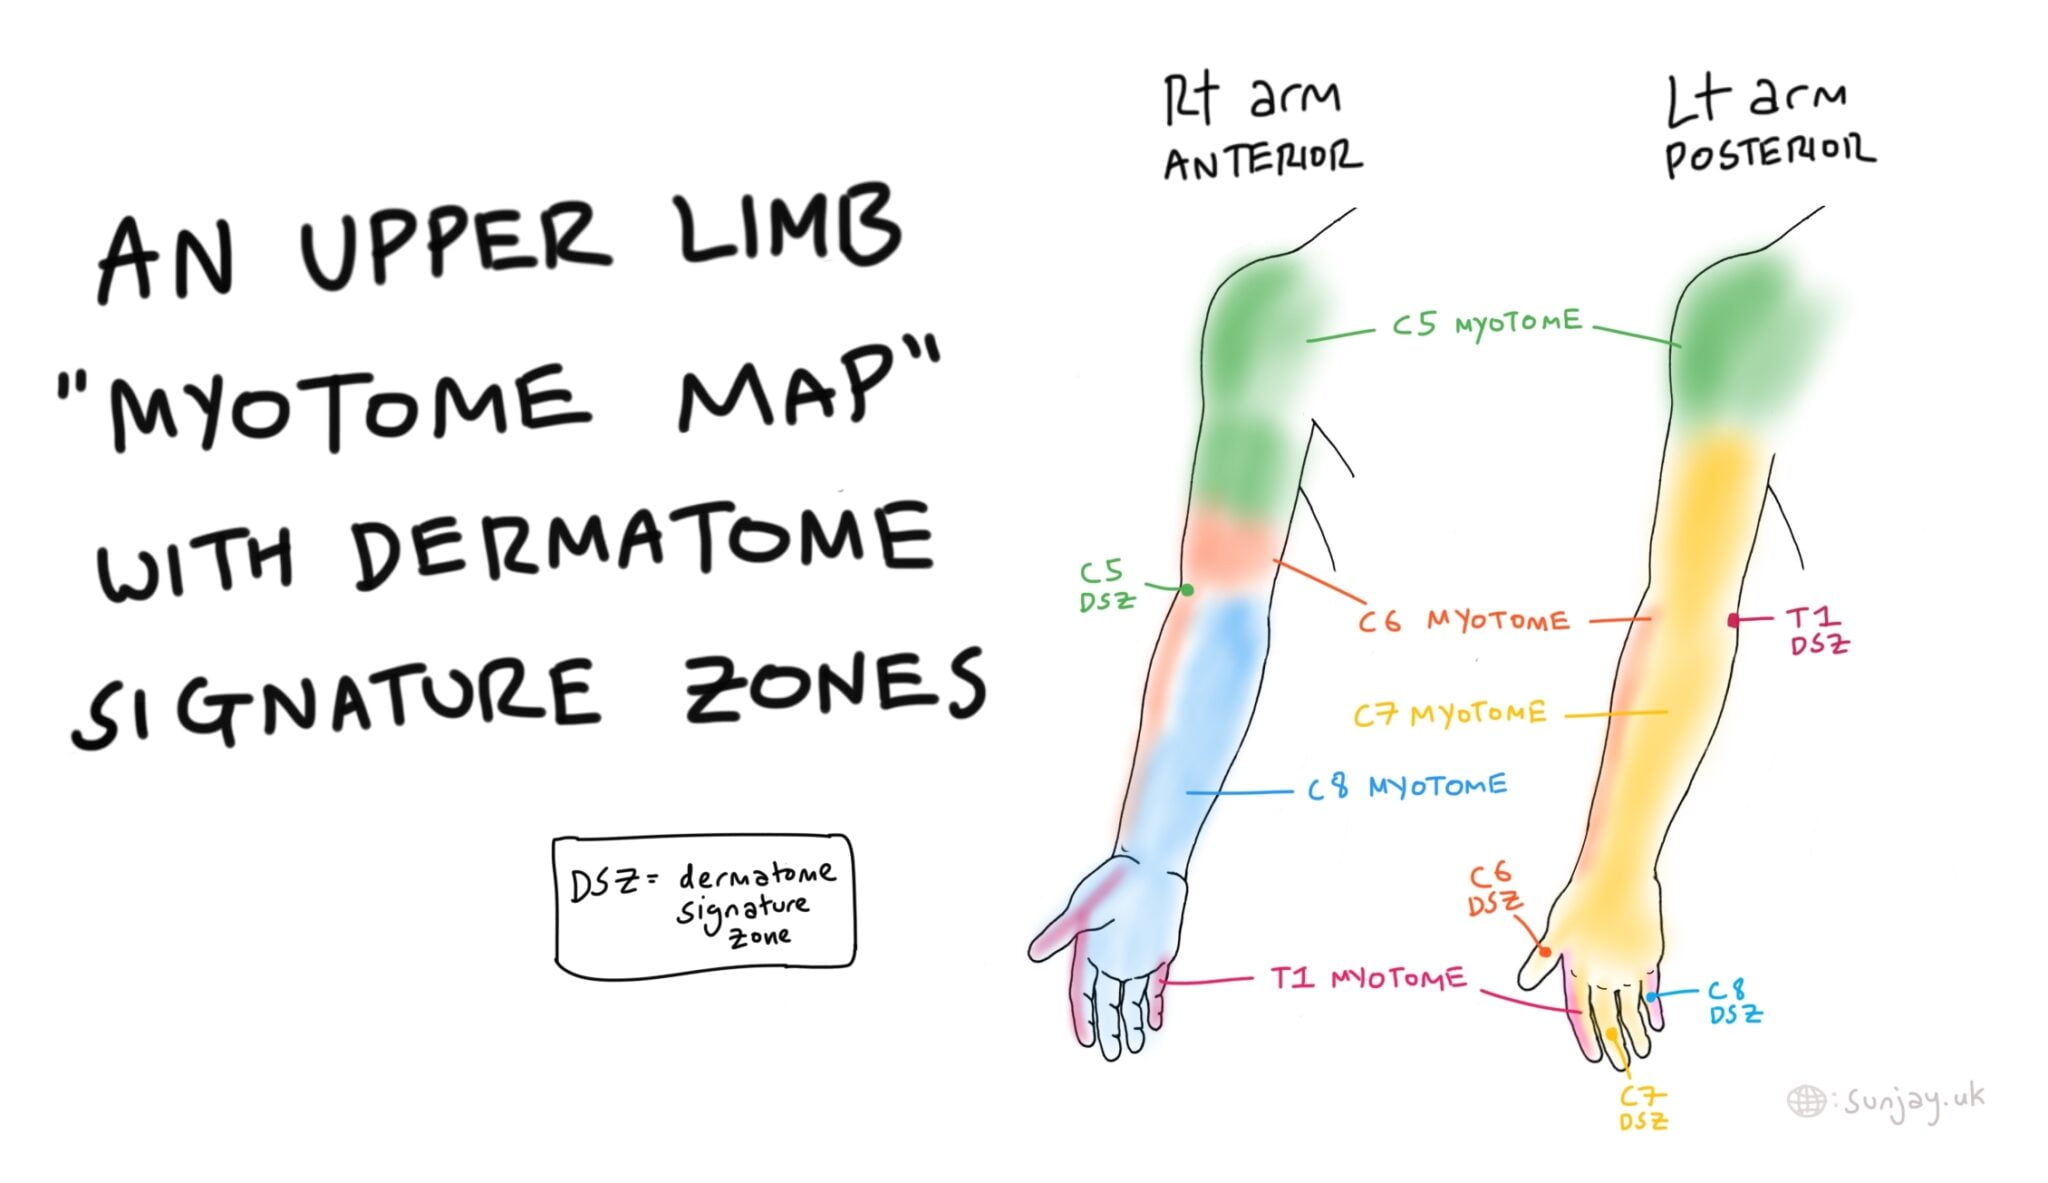 AN UPPER LIMB
"MYOTOME MAP"
WITH DERMATOME
SIGNATURE ZONES
DSZ = dermatome
signature
zone
Rt arm
ANTERIOR
Lt arm
POSTERIOR
C5 MYOTOME
C5
DSZ
C6 MYOTOME
T1
DSZ
C7 MYOTOME
C8 MYOTOME
C6
DSZ
T1 MYOTOME
C8
DSZ
C7
DSZ
: sunjay.uk